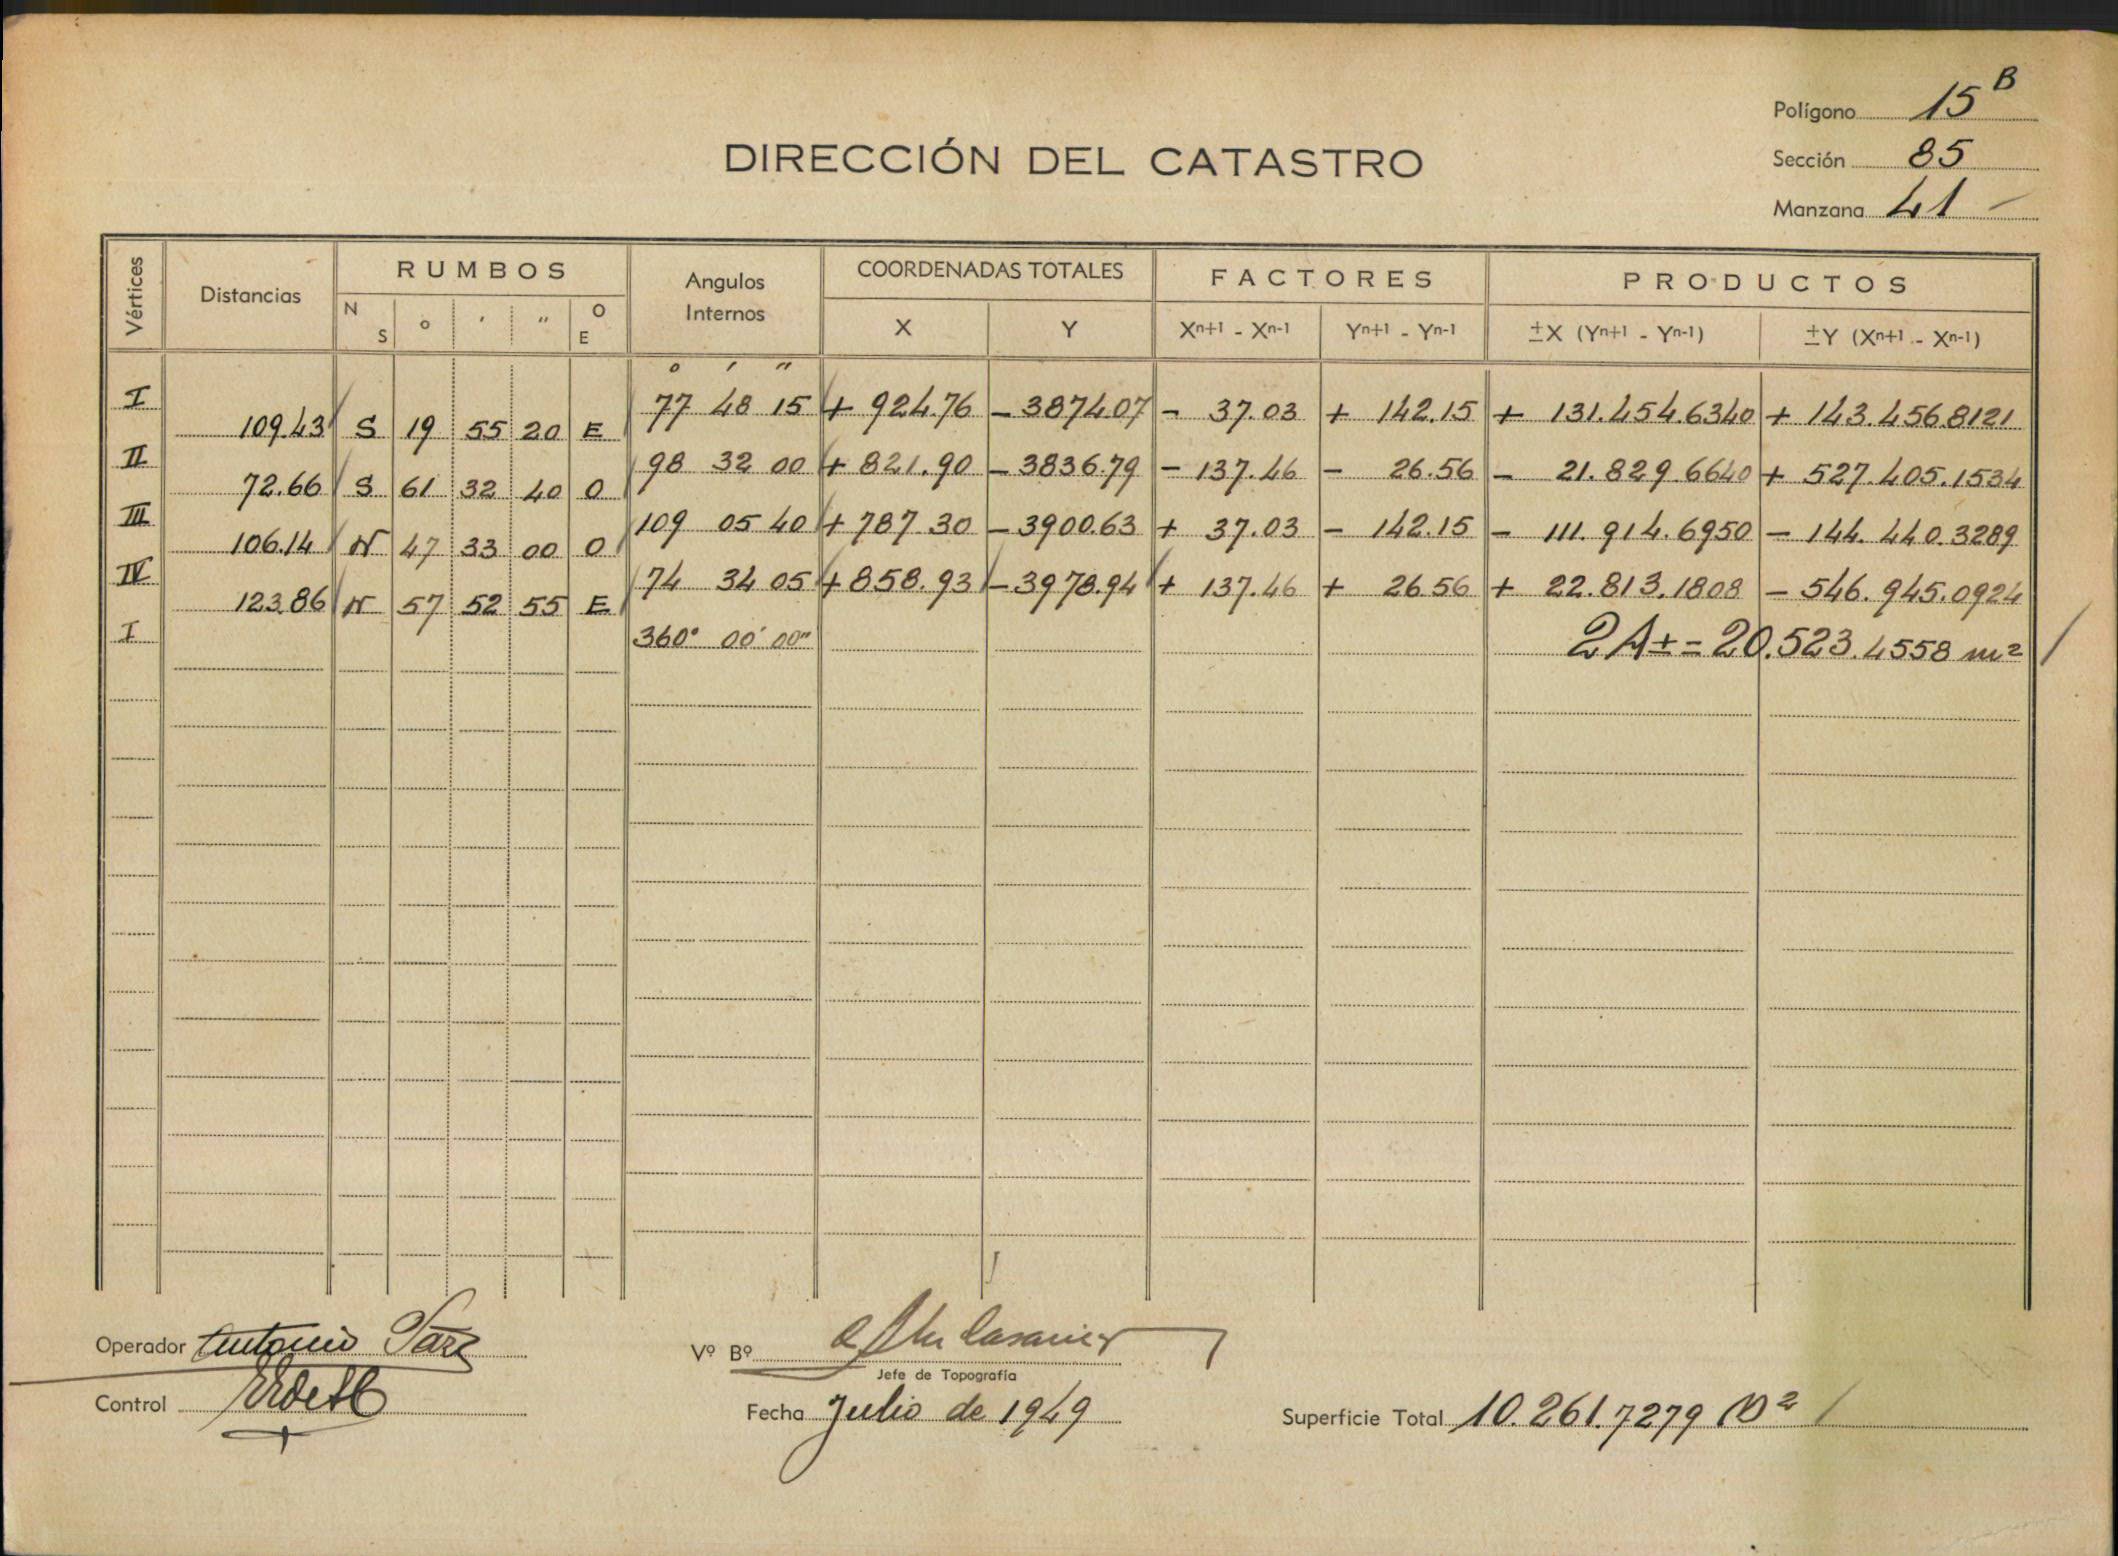 Polígono 15 B
DIRECCIÓN DEL CATASTRO
Sección 85
Manzana 41 -
Vértices Distancias RUMBOS Angulos Internos COORDENADAS TOTALES FACTORES PRODUCTOS
N S ° ′ ″ O E X Y Xn+1 - Xn-1 Yn+1 - Yn-1 ±X (Yn+1 - Yn-1) ±Y (Xn+1 - Xn-1)
° ′ ″
I 77 48 15 + 924.76 - 3874.07 - 37.03 + 142.15 + 131.454.6340 + 143.456.8121
109.43 S 19 55 20 E
II 98 32 00 + 821.90 - 3836.79 - 137.46 - 26.56 - 21.829.6640 + 527.405.1534
72.66 S 61 32 40 O
III 109 05 40 + 787.30 - 3900.63 + 37.03 - 142.15 - 111.914.6950 - 144.440.3289
106.14 N 47 33 00 O
IV 74 34 05 + 858.93 - 3978.94 + 137.46 + 26.56 + 22.813.1808 - 546.945.0924
123.86 N 57 52 55 E
I 360° 00′ 00″ 2A± = 20.523.4558 m²
Operador Antonio
Vº Bº
Jefe de Topografía
Control
Fecha Julio de 1949
Superficie Total 10.261.7279 M²